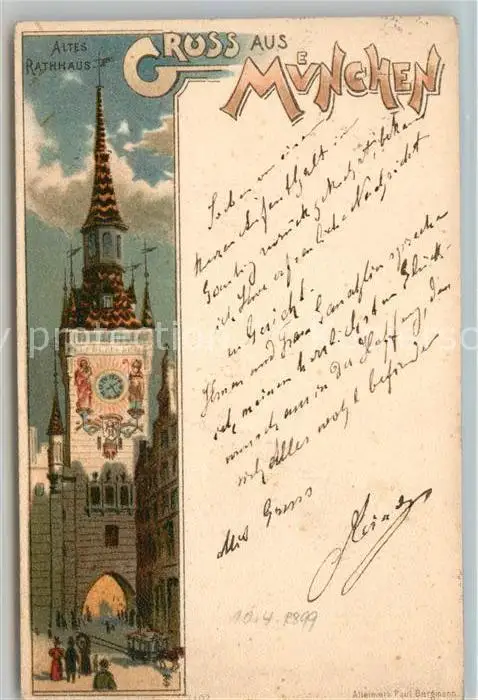 ALTES
RATHHAUS
GRUSS AUS
MÜNCHEN
Soeben von einem
kurzen Aufenthalt in
zurückgekehrt,
ich Ihre erfreuliche Nachricht
zu Gesicht.
Ihnen und Frau Gemahlin spreche
ich meinen herzlichsten Glück-
wunsch aus in der Hoffnung, dass
sich Alles wohl befindet
Mit Gruss
10.4.1899
Alleinvert. Paul Bergmann